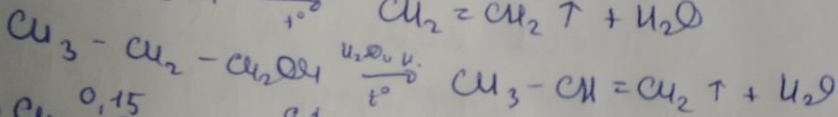 t° CH₂ = CH₂ ↑ + H₂O
CH₃ - CH₂ - CH₂OH H₂SO₄ к. → t° CH₃ - CH = CH₂ ↑ + H₂O
0,15